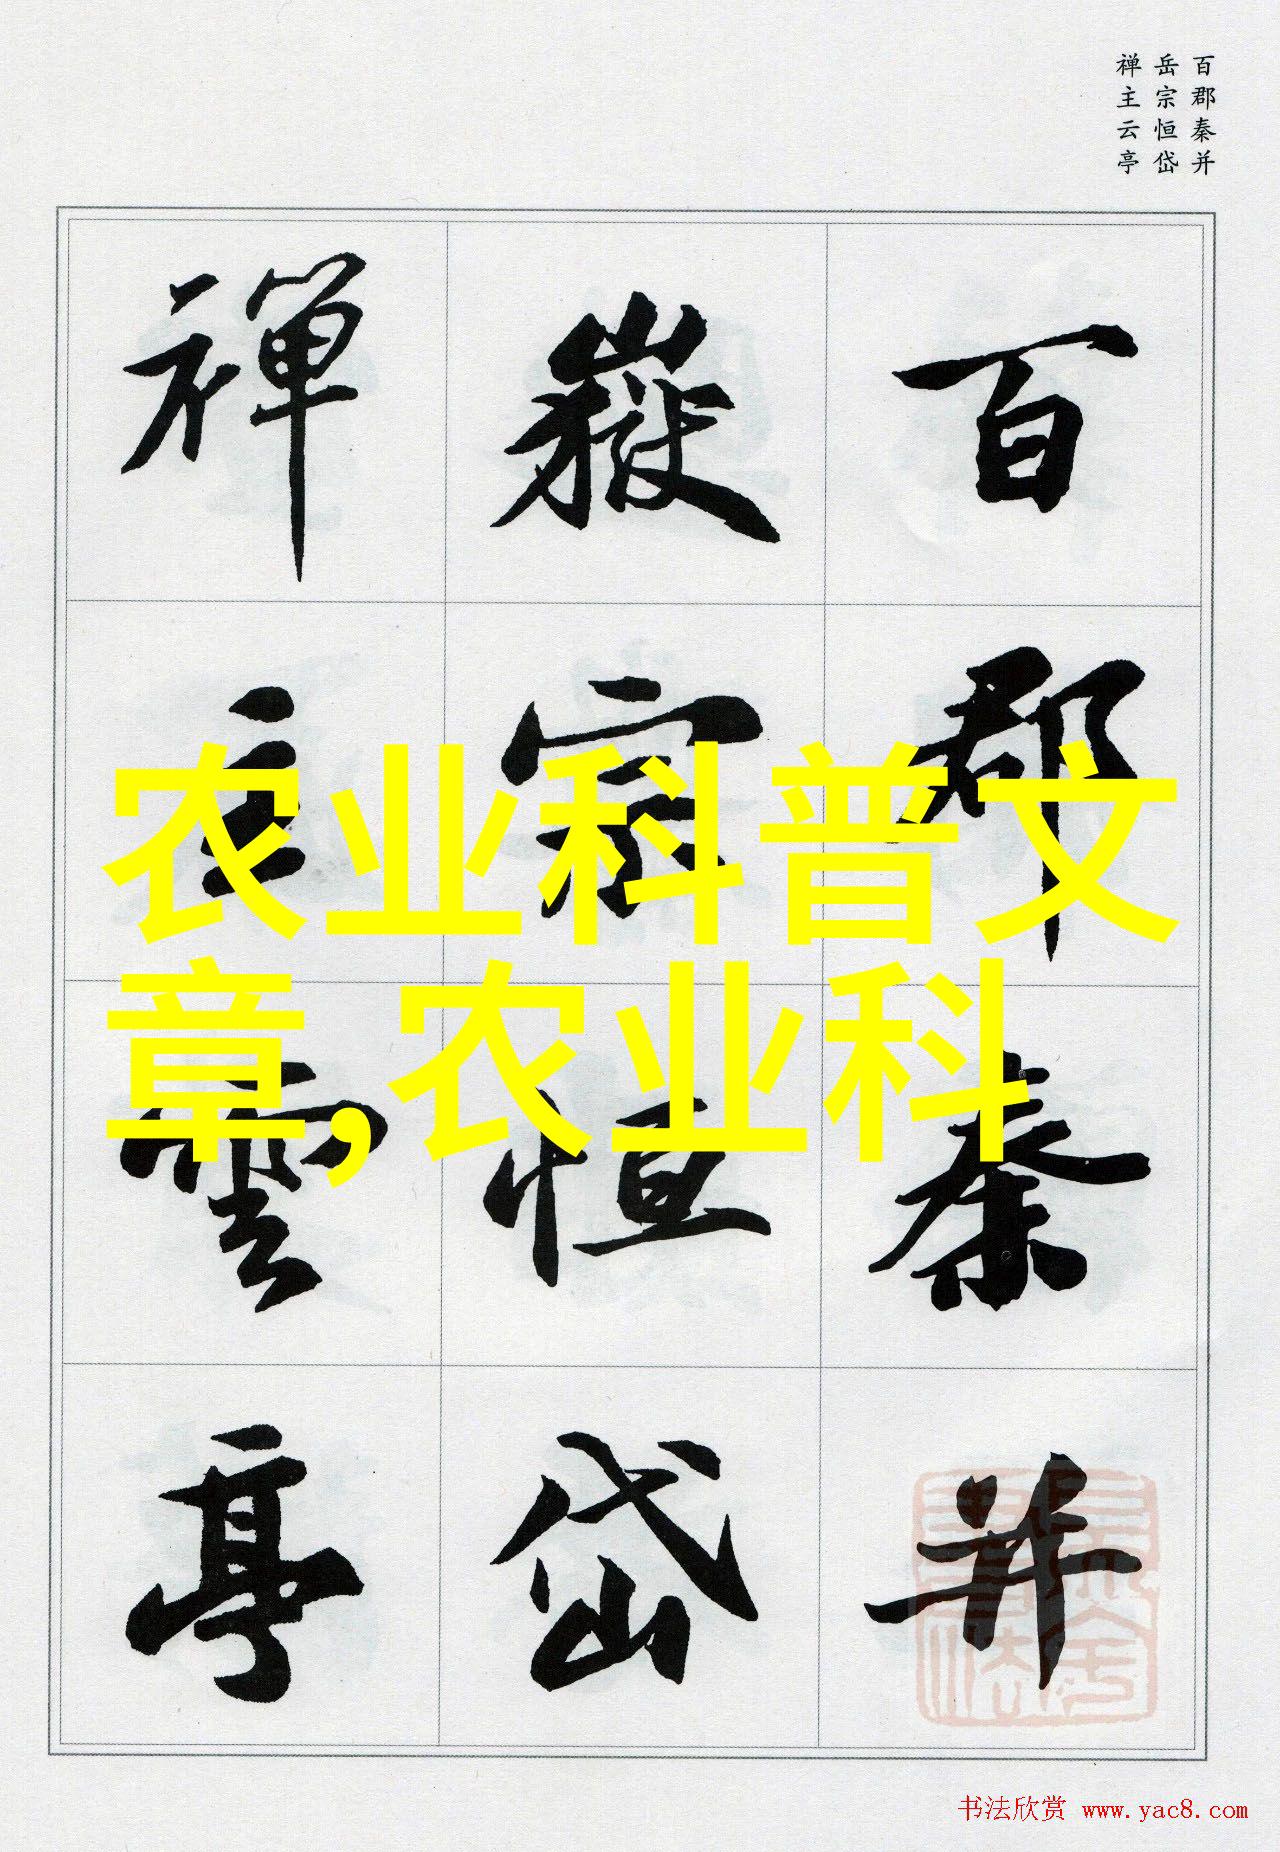 百郡秦并
岳宗恒岱
禅主云亭
百郡秦并
嶽宗恒岱
禅主雲亭
农业科普文
章,农业科
书法欣赏 www.yac8.com